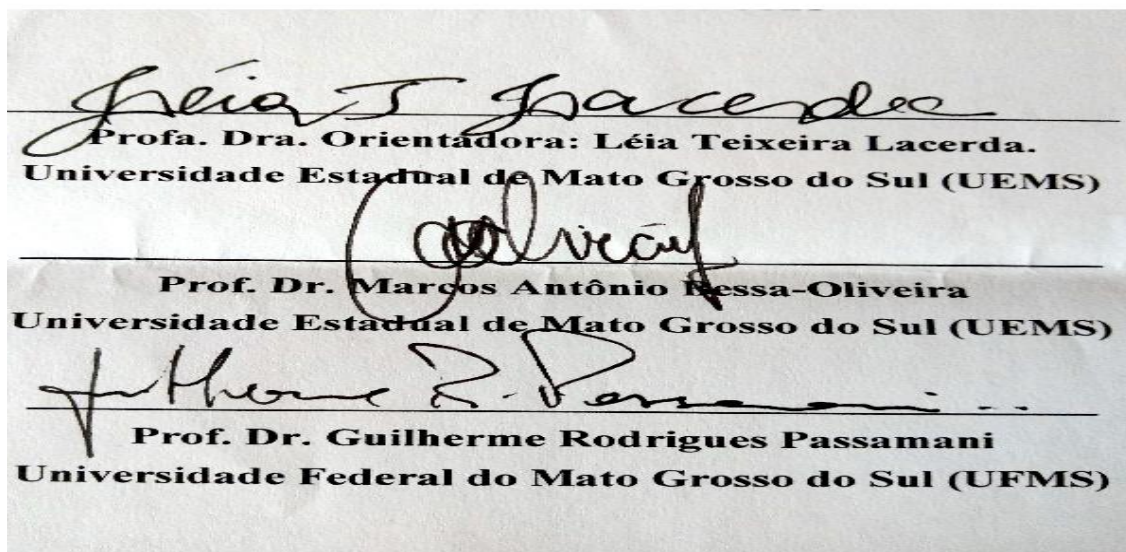 Léia T Lacerda
Profa. Dra. Orientadora: Léia Teixeira Lacerda.
Universidade Estadual de Mato Grosso do Sul (UEMS)
Prof. Dr. Marcos Antônio Bessa-Oliveira
Universidade Estadual de Mato Grosso do Sul (UEMS)
Guilherme R. Passamani
Prof. Dr. Guilherme Rodrigues Passamani
Universidade Federal do Mato Grosso do Sul (UFMS)